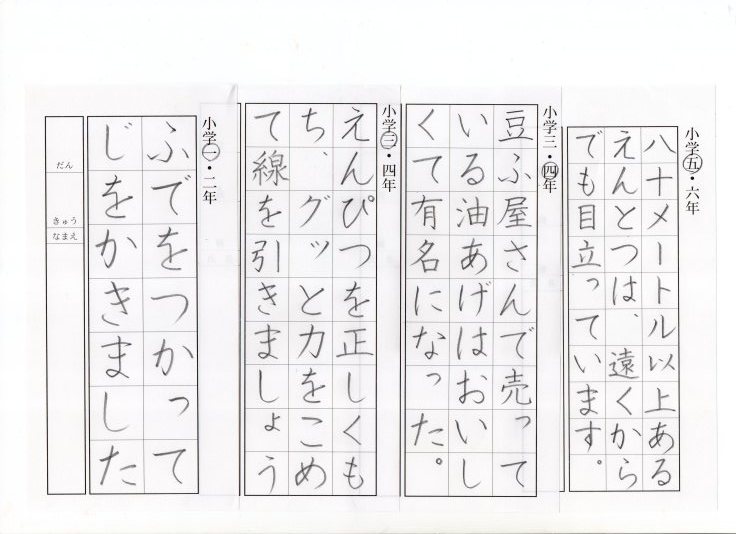 小学五・六年
八十メートル以上ある
えんとつは、遠くから
でも目立っています。
小学三・四年
豆ふ屋さんで売って
いる油あげはおいし
くて有名になった。
小学三・四年
えんぴつを正しくも
ち、グッと力をこめ
て線を引きましょう
小学一・二年
ふでをつかって
じをかきました
だん
きゅう
なまえ